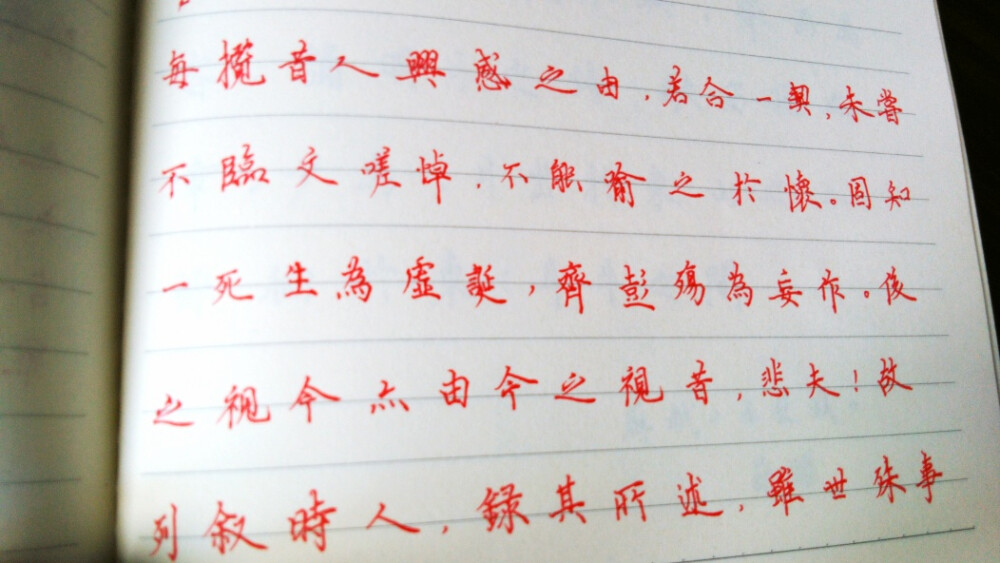 每攬昔人興感之由，若合一契，未嘗
不臨文嗟悼，不能喻之於懷。固知
一死生為虛誕，齊彭殤為妄作。後
之視今亦由今之視昔，悲夫！故
列叙時人，録其所述，雖世殊事